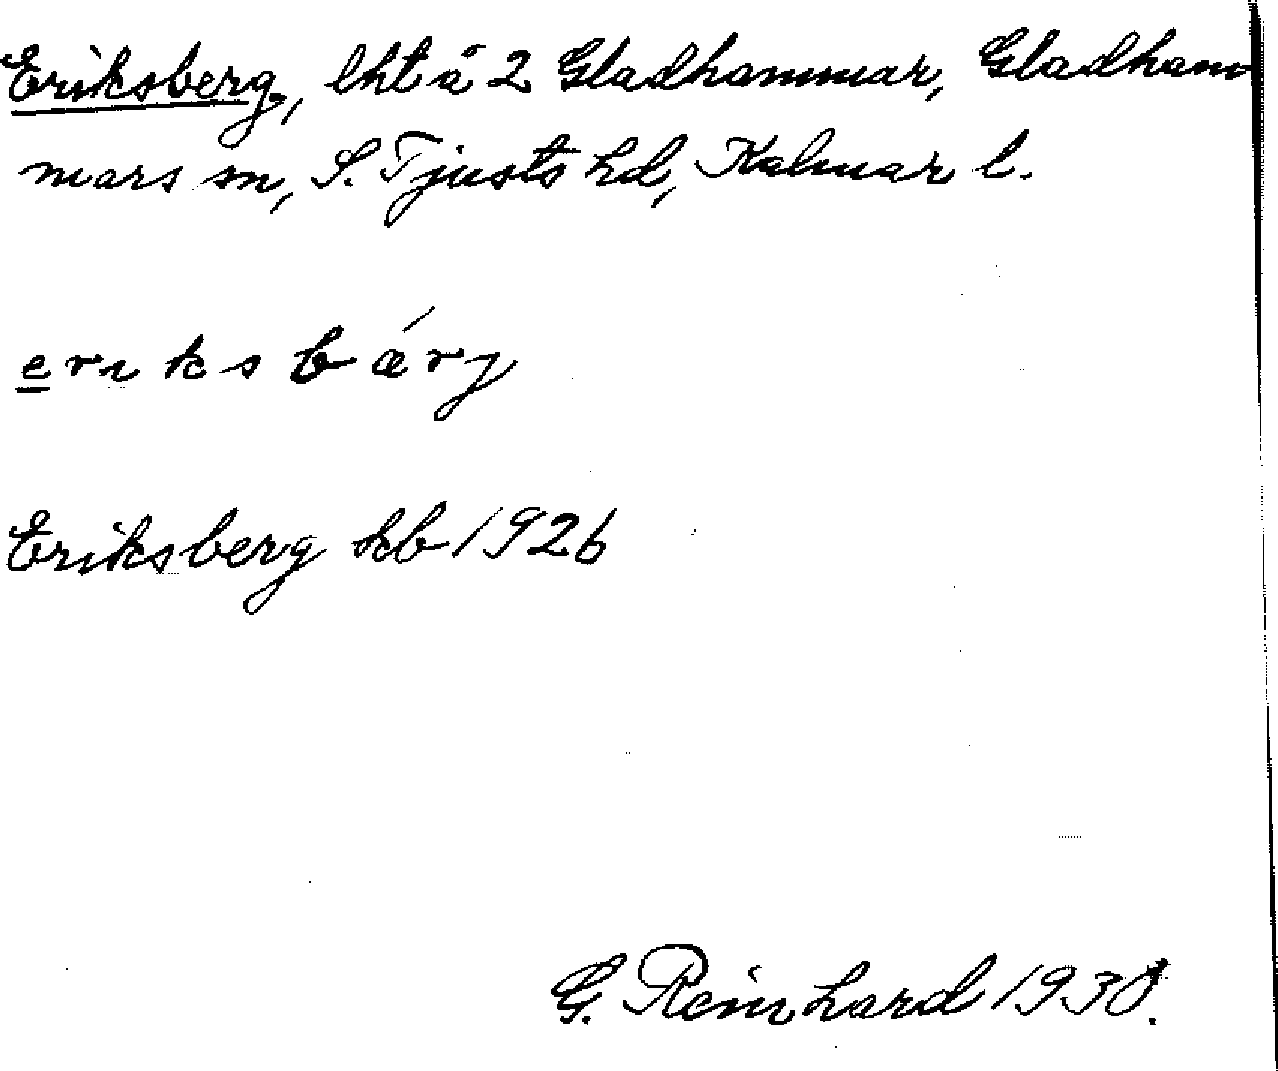 Eriksberg, lht å 2 Gladhammar, Gladham
mars sn, S. Tjusts hd, Kalmar l.
eriksbǽrj
Eriksberg kb 1926
G. Reinhard 1930.